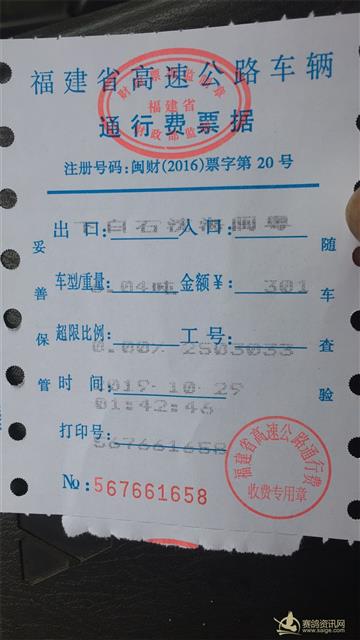 福建省高速公路车辆
通行费票据
财政票据监制章
福建省
财政部监制
注册号码:闽财(2016)票字第20号
出口: 下白石 入口:
车型/重量: 金额¥: 301
超限比例: 工号:
0.00% 2503033
时间 2019-10-29
01:42:46
打印号:
567661658
No: 567661658
妥善保管
随车查验
福建省高速公路通行费
收费专用章
赛鸽资讯网
www.saige.com